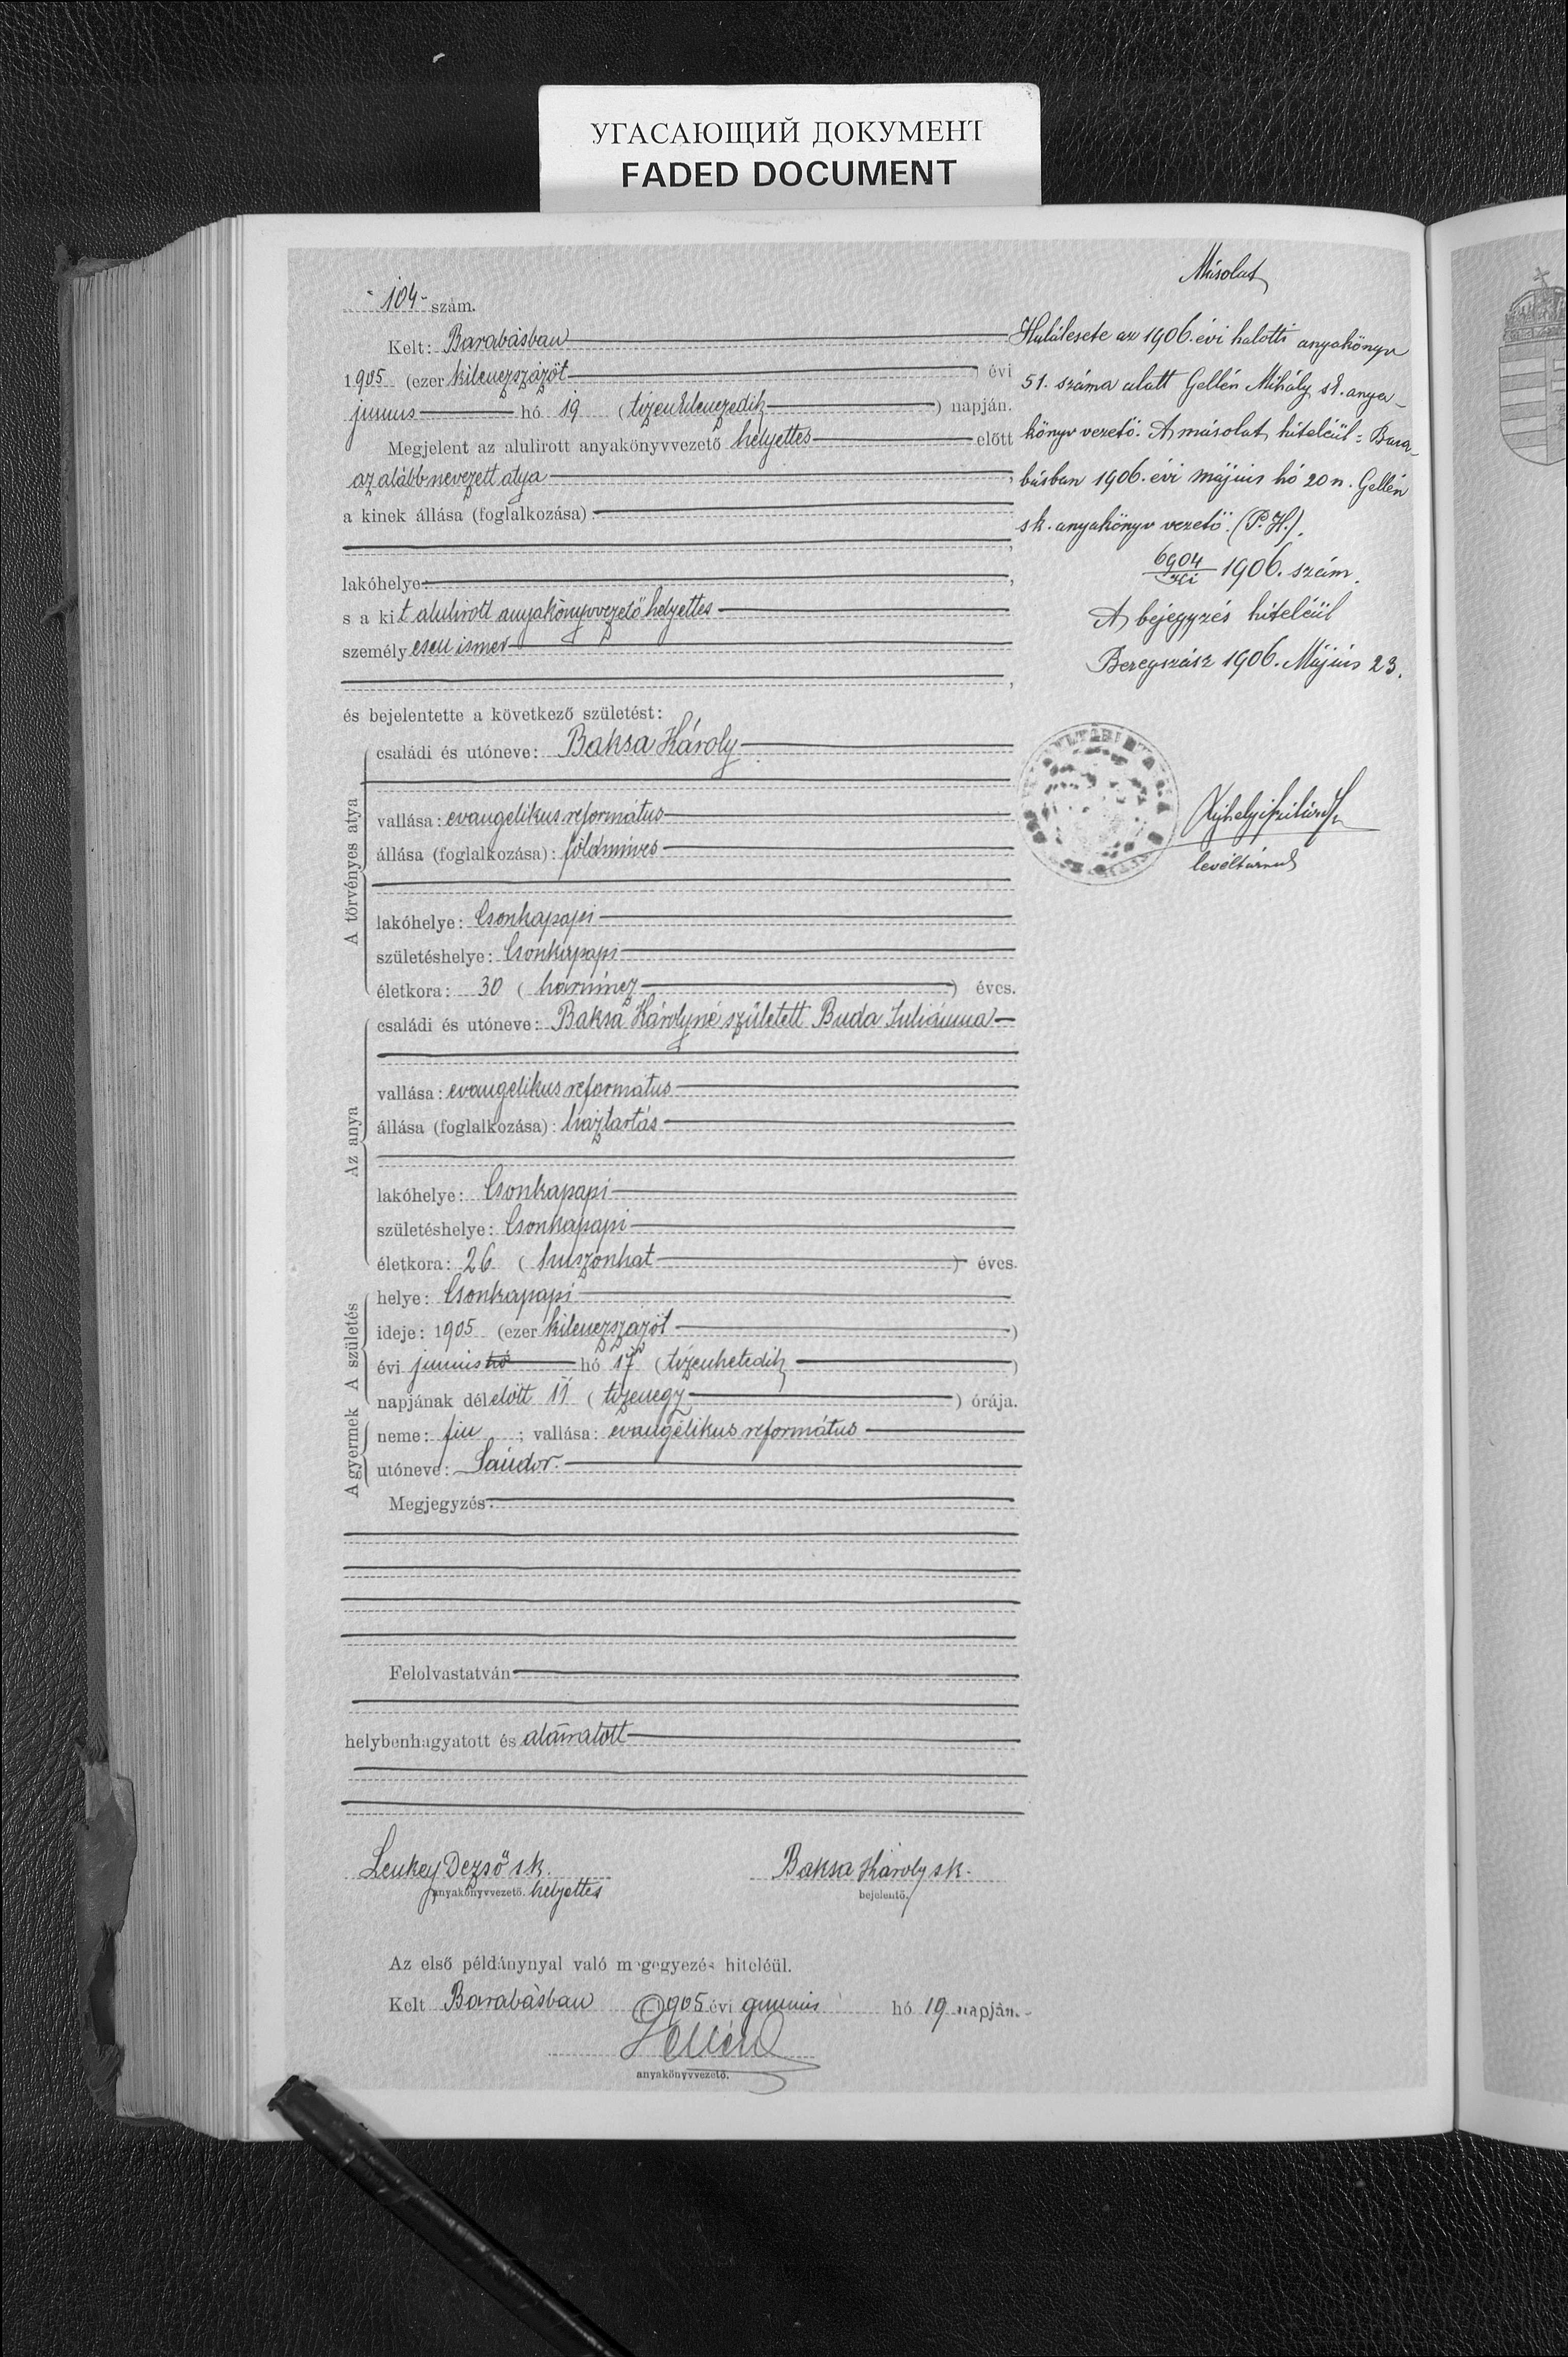 УГАСАЮЩИЙ ДОКУМЕНТ
FADED DOCUMENT
104 szám.
Kelt: Barabásban
1905 (ezer kilenczszázöt) évi
junius hó 19 (tizenkilenczedik) napján.
Megjelent az alulirott anyakönyvvezető helyettes előtt
az alább nevezett atya,
a kinek állása (foglalkozása):
lakóhelye:
s a kit alulirott anyakönyvvezető helyettes
személyesen ismer
és bejelentette a következő születést:
A törvényes atya
családi és utóneve: Baksa Károly
vallása: evangelikus református
állása (foglalkozása): földmives
lakóhelye: Csonkapapi
születéshelye: Csonkapapi
életkora: 30 (harmincz) éves.
Az anya
családi és utóneve: Baksa Károlyné született Buda Juliánna
vallása: evangelikus református
állása (foglalkozása): háztartás
lakóhelye: Csonkapapi
születéshelye: Csonkapapi
életkora: 26 (huszonhat) éves.
A születés
helye: Csonkapapi
ideje: 1905 (ezer kilenczszázöt)
évi junius hó hó 17 (tizenhetedik)
napjának délelőtt 11 (tizenegy) órája.
A gyermek
neme: fiu; vallása: evangélikus református
utóneve: Sándor.
Megjegyzés:
Felolvastatván
helybenhagyatott és aláiratott
Leukey Dezső sk.
anyakönyvvezető. helyettes
Baksa Károly sk.
bejelentő.
Az első példánynyal való megegyezés hiteléül.
Kelt Barabásban 1905 évi junius hó 19 napján.
Gellén
anyakönyvvezető.
Másolat
Halálesete az 1906. évi halotti anyakönyv
51. száma alatt Gellén Mihály sk. anya-
könyv vezető. A másolat hiteléül: Bara-
básban 1906. évi május hó 20 n. Gellén
sk. anyakönyv vezető. (P. H.)
6904/Ki 1906. szám.
A bejegyzés hiteléül
Beregszász 1906. Május 23.
levéltárnok